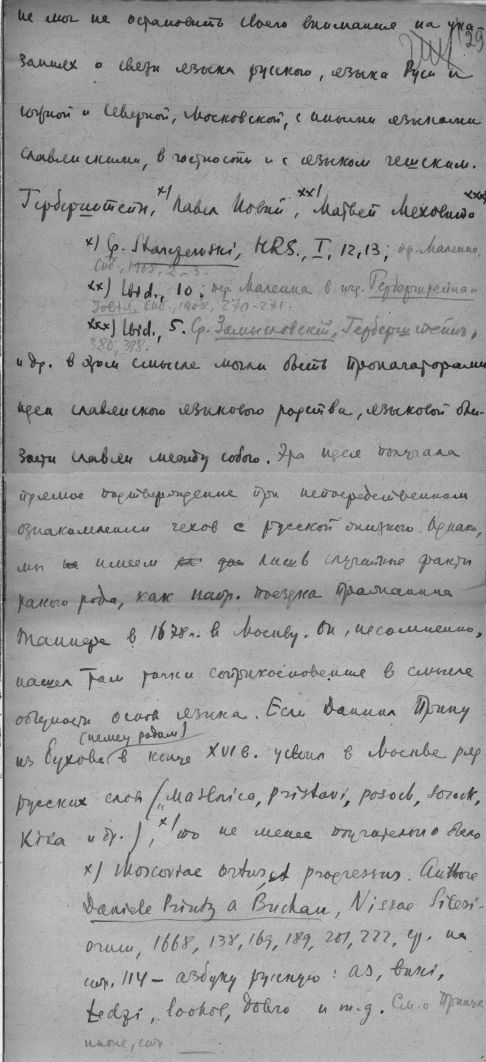 29
не мог не остановить своего внимания на ука-
заниях о связи языка русского, языка Руси и
южной и северной, Московской, с иными языками
славянскими, в частности и с языком чешским.
Герберштейн, x) Павел Иовий, xx) Матвей Меховита xxx)
x) Ср. Starczewski, HRS., I, 12, 13; пер. Малеина,
Спб., 1908, 2-3.
xx) Ibid., 10; пер. Малеина в изд. Герберштейна и
Иовия, Спб., 1908, 270-271.
xxx) Ibid., 5. Ср. Замысловский, Герберштейн,
380, 398.
и др. в этом смысле могли быть пропагаторами
идеи славянского языкового родства, языковой бли-
зости славян между собою. Эта идея получала
прямое подтверждение при непосредственном
ознакомлении чехов с русской книгою. Однако,
мы имеем лишь случайные факты
такого рода, как напр. поездка пражанина
Таннера в 1678 г. в Москву. Он, несомненно,
нашел там точки соприкосновения в смысле
общности основ языка. Если Даниил Принц
(немец родом)
из Бухова в конце XVI в. усвоил в Москве ряд
русских слов („Maslnica, pristavi, posoch, sorock,
Kika и др.), x) то не менее поучительно было
x) Moscoviae ortus et progressus. Authore
Daniele Printz a Buchau, Nissae Silesi-
orum, 1668, 138, 169, 189, 201, 222, ср. на
стр. 114 – азбуку русскую: as, buki,
dobro и т.д. См. о Принце
ниже, стр.